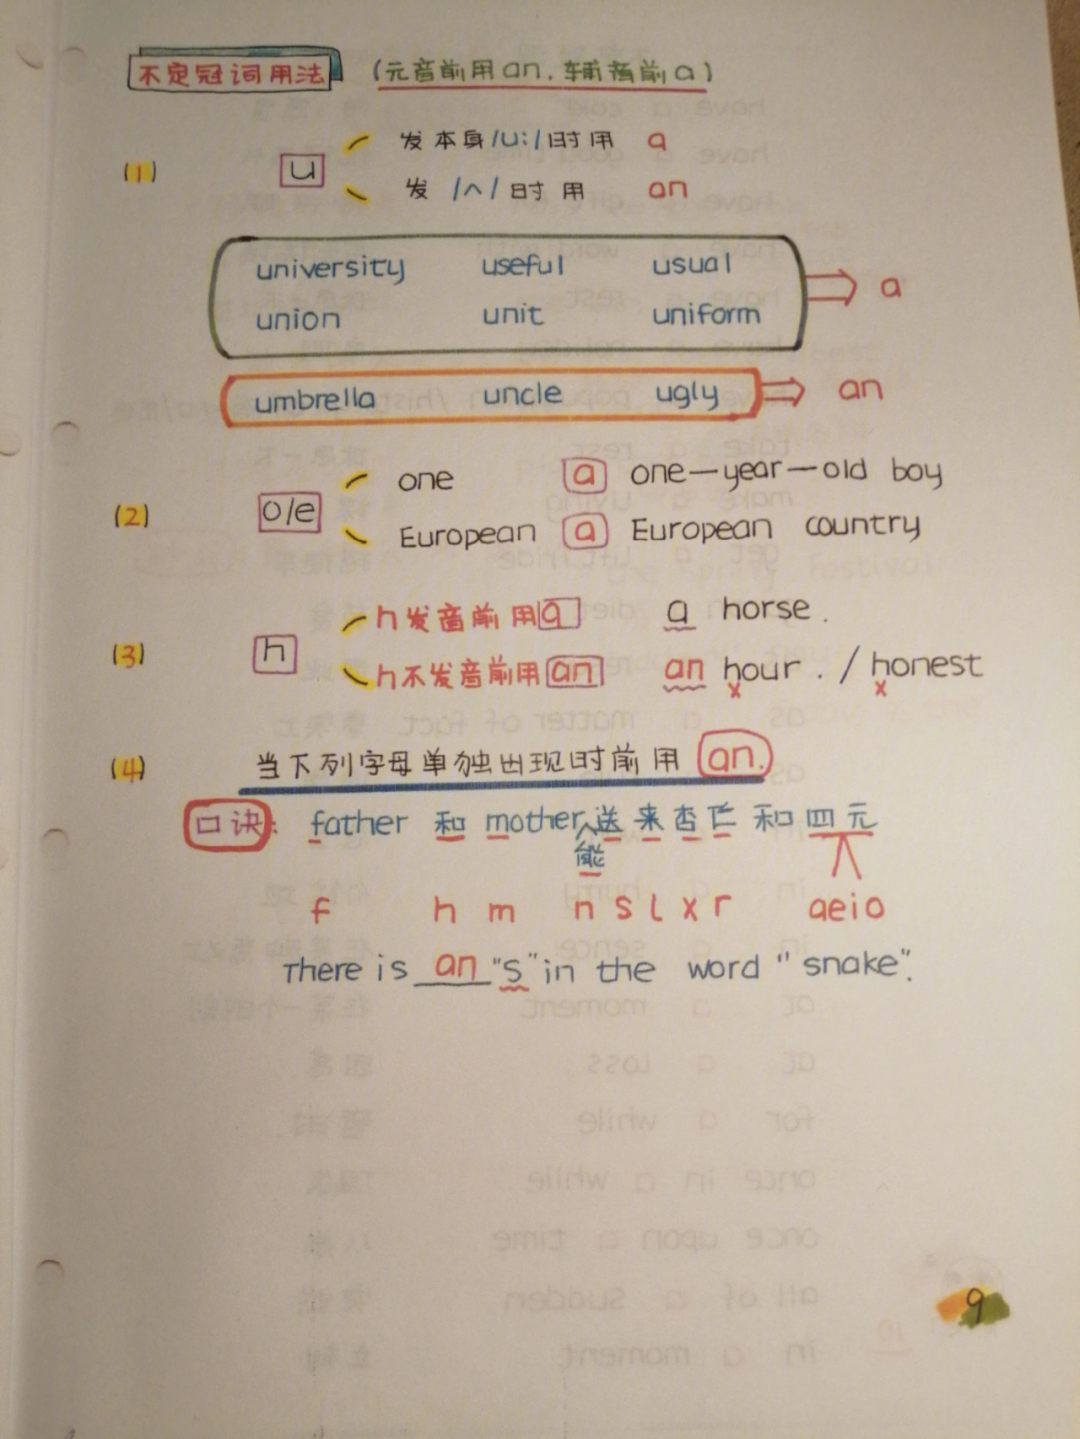 不定冠词用法 (元音前用an.辅音前a)
(1) u 发本身/u:/时用 a
发 /ʌ/ 时用 an
university useful usual
union unit uniform a
umbrella uncle ugly an
(2) o/e one a one—year—old boy
European a European country
(3) h h发音前用a a horse.
h不发音前用an an hour. / honest
(4) 当下列字母单独出现时前用 an.
口诀: father 和 mother能送来杏仁和四元
f h m n s l x r aeio
There is an "s" in the word "snake".
9